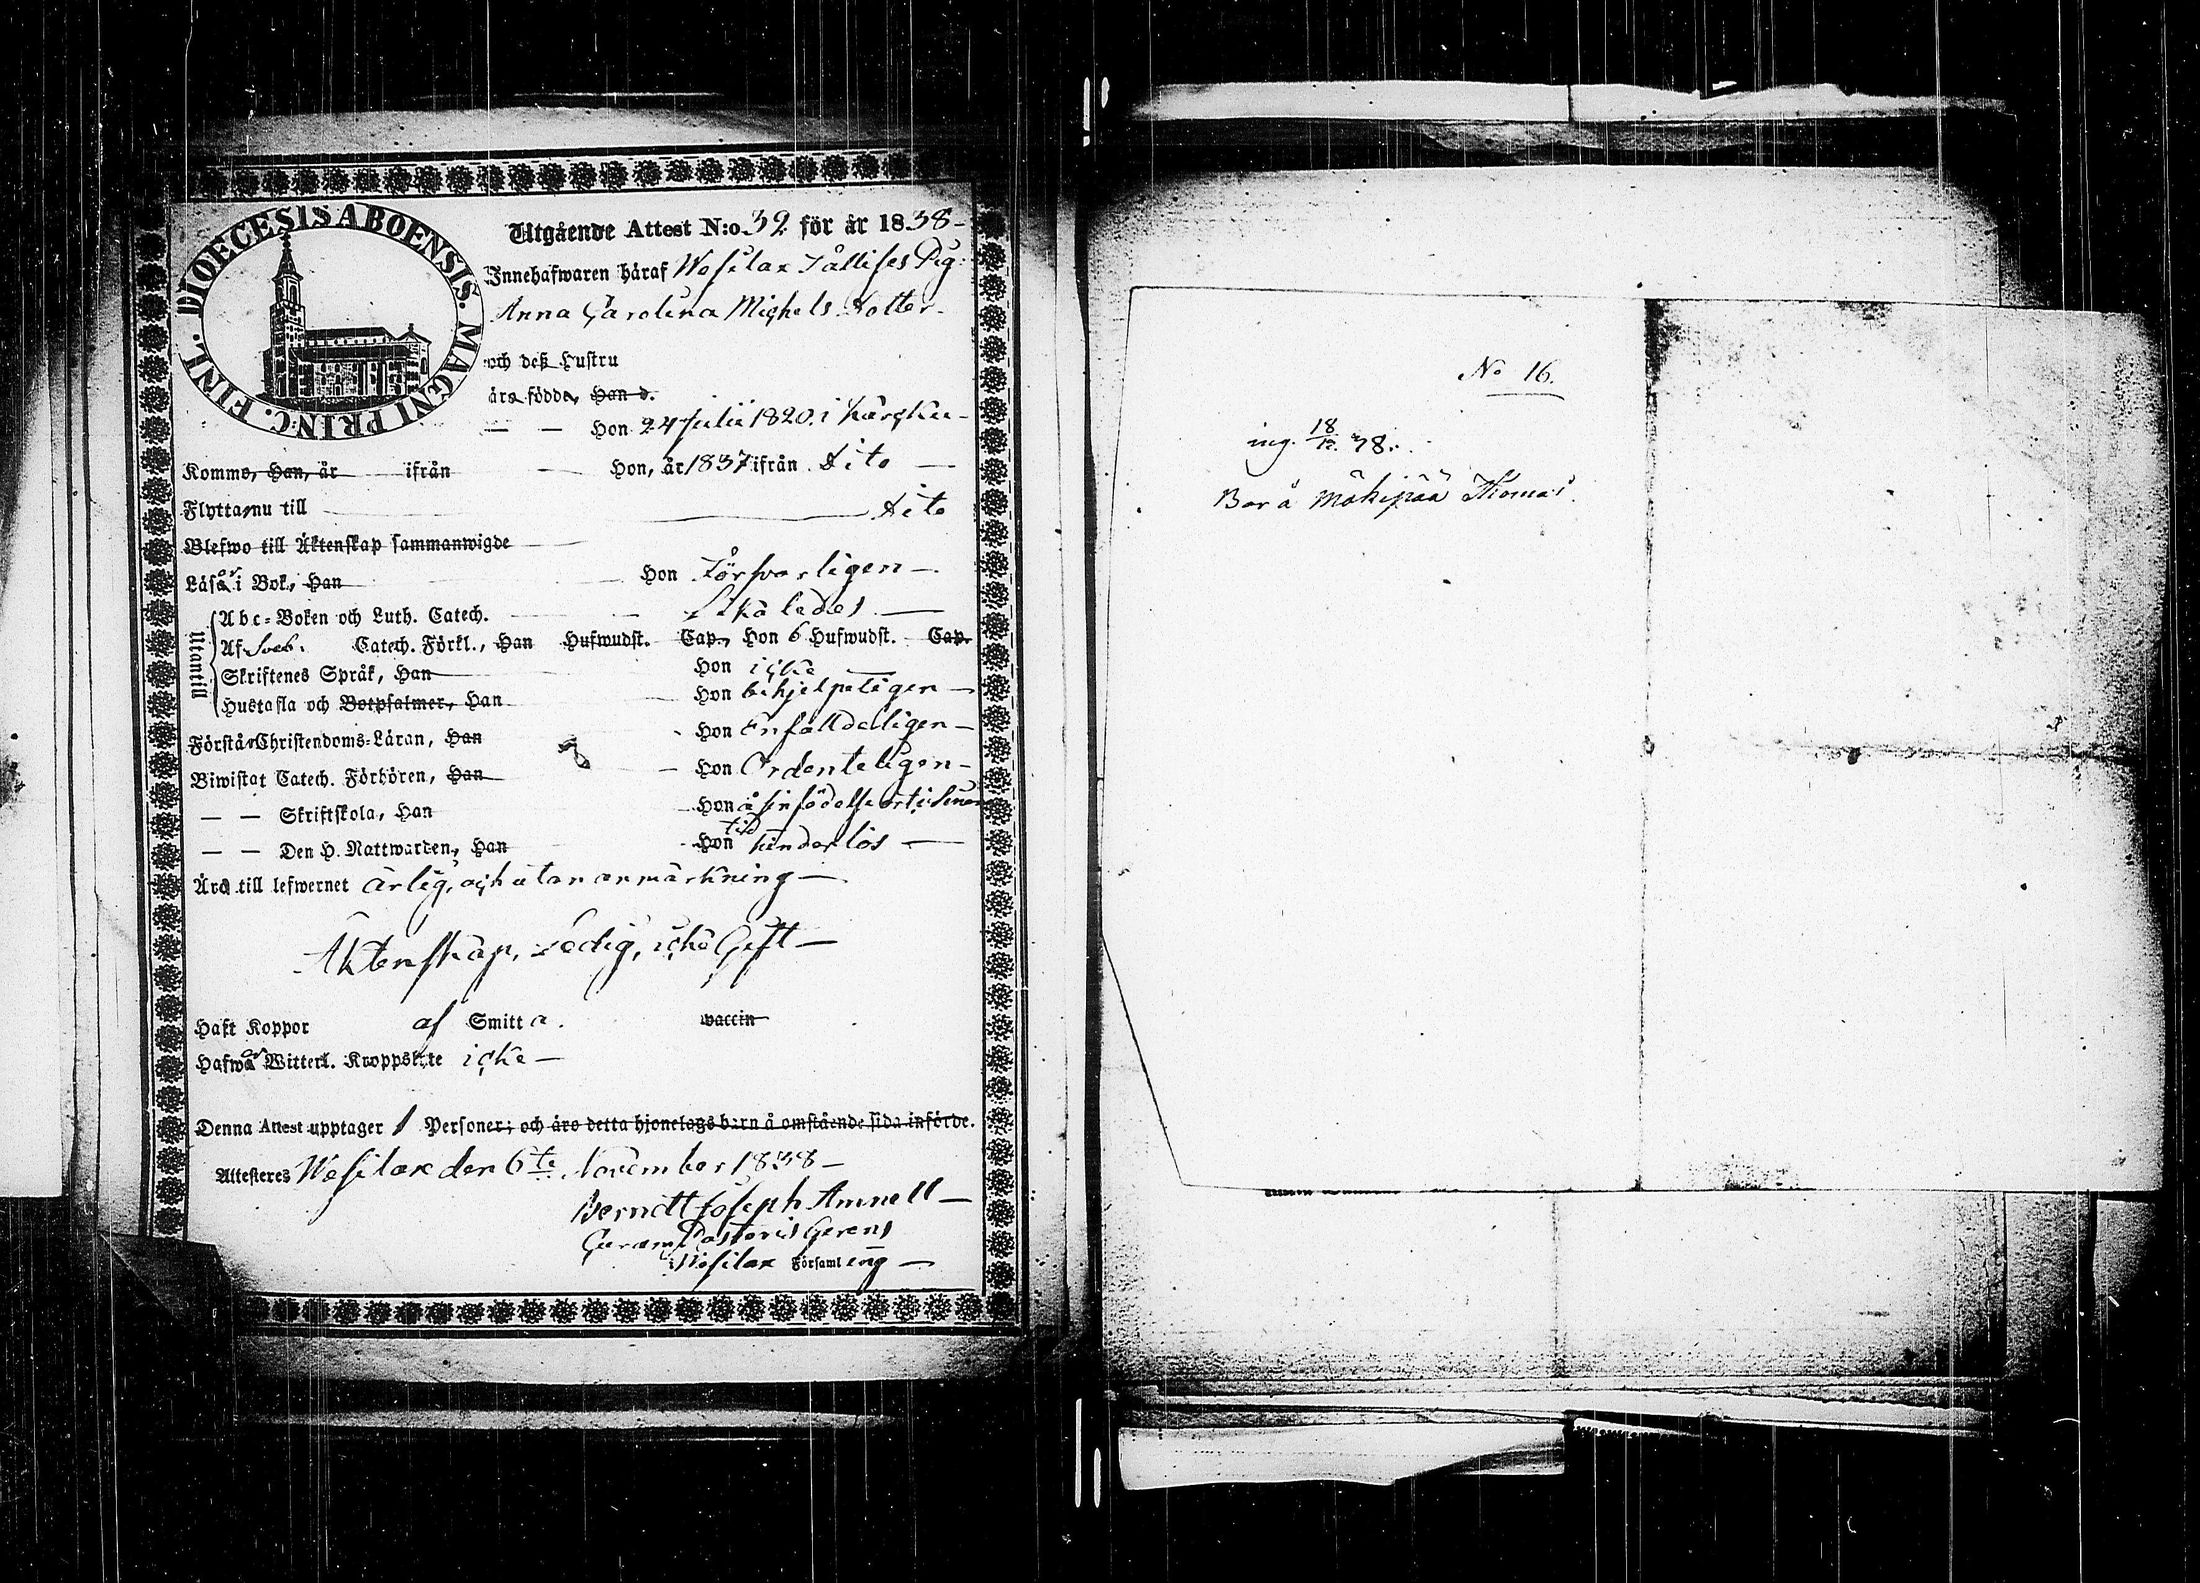 DIOECESIS ABOENSIS. MAGNI PRINC. FINL.
Utgående Attest N:o 32 för år 1838 –
Innehafwaren häraf Wesilax Pig:
Anna Carolina Michels Dotter –
och deß Hustru
äro födde, Han d.
— — Hon 24 Julii 1820. i Kärcku –
Komme, Han, år ifrån — Hon, år 1837 ifrån Dito —
Flytta nu till — Dito
Blefwo till Äktenskap sammanwigde
Läsa er i Bok, Han — Hon Försvarligen –
Utantill
Abc-Boken och Luth. Catech. — Likaledes —
Af Sveb. Catech. Förkl., Han Hufwudst. Cap., Hon 6 Hufwudst. Cap.
Skriftenes Språk, Han — Hon icke
Hustafla och Botpsalmer, Han — Hon behjelpeligen –
Förstår Christendoms-Läran, Han — Hon Enfalldeligen –
Biwistat Catech. Förhören, Han — Hon Ordenteligen –
— — Skriftskola, Han — Hon å sin födelse ort i sinom
tid
— — Den H. Nattwarden, Han — Hon hinderlös —
Äro till lefwernet ärlig, och utan anmärkning —
Äktenskap, ledig, icke Gift —
Haft Koppor af Smitta. vaccin
Hafwa er Witterl. Kroppslyte icke —
Denna Attest upptager 1 Personer; och äro detta hjonelags barn å omstående sida införde.
Attesteres Wesilax den 6te November 1838 –
Berndt Joseph Amnell —
Curam Pastoris Gerens
i Wesilax Församling —
No 16.
ing. 18/12. 38.
Bor å Mähipää Thomas.